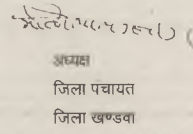 अध्यक्ष
जिला पंचायत
जिला खण्डवा